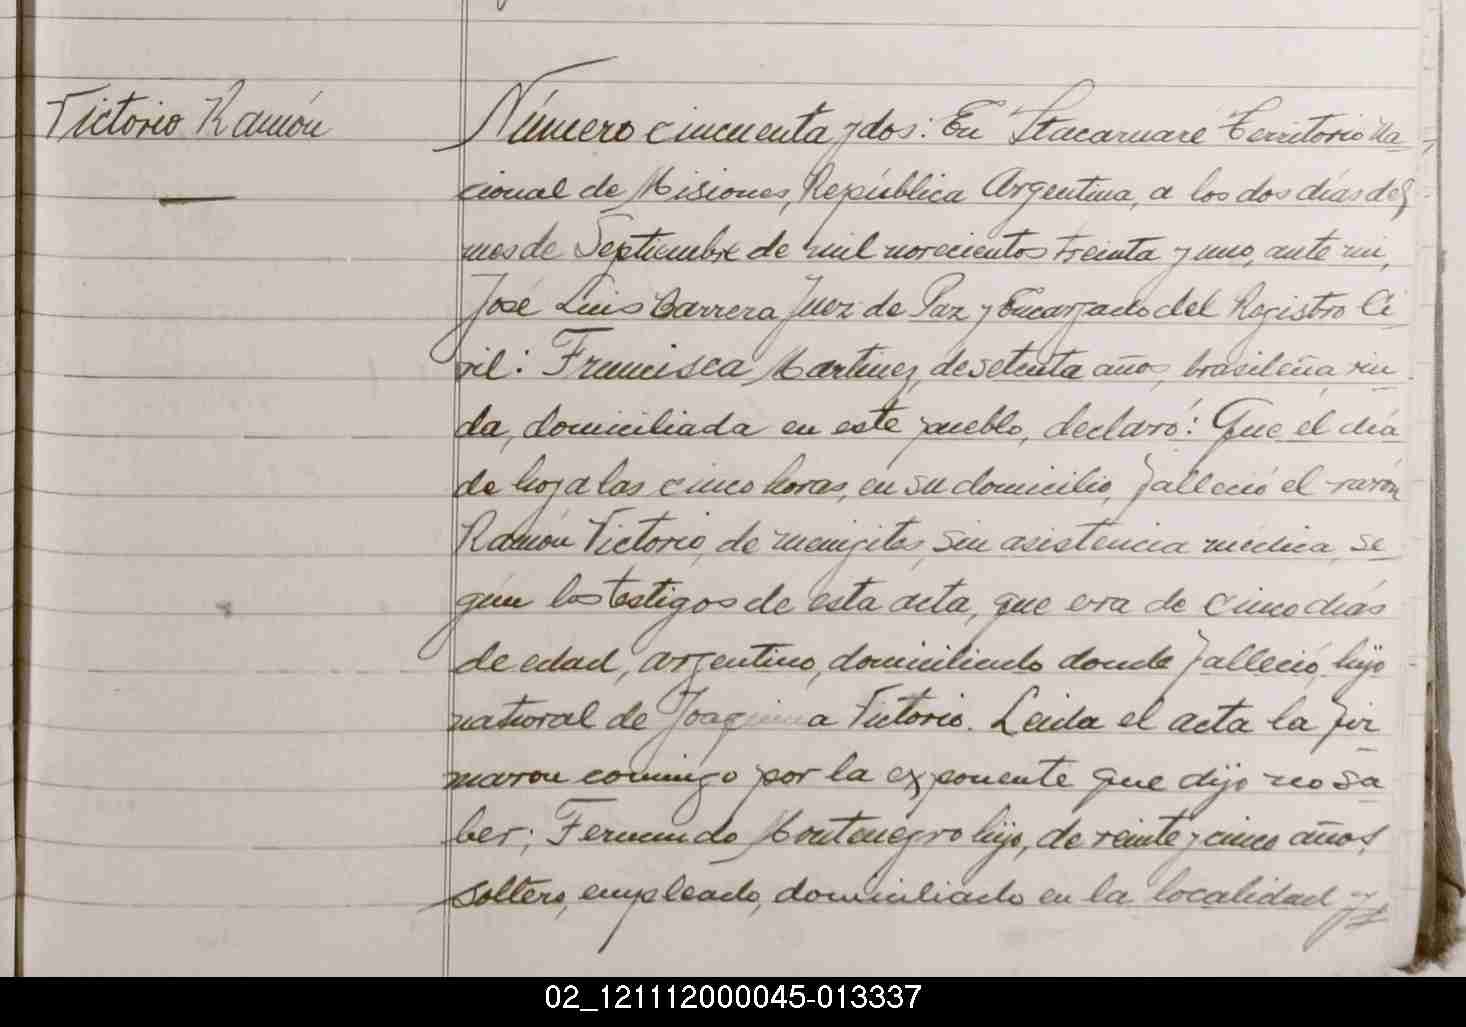 Victorio Ramón
Número cincuenta y dos: En Itacaruaré Territorio Na-
cional de Misiones, República Argentina, a los dos días del
mes de Septiembre de mil novecientos treinta y uno, ante mi,
José Luis Barrera Juez de Paz y Encargado del Registro Ci-
vil: Francisca Martinez, de setenta años, brasileña viu-
da, domiciliada en este pueblo, declaró: Que el día
de hoy a las cinco horas, en su domicilio, falleció el varón
Ramón Victorio, de meingites, sin asistencia médica, se-
gún los testigos de esta acta, que era de cinco días
de edad, argentino, domiciliado donde falleció, hijo
natural de Joaquina Victorio. Leida el acta la fir-
maron conmigo por la exponente que dijo no sa-
ber; Fernando Montenegro hijo, de veinte y cinco años,
soltero, empleado, domiciliado en la localidad y
02_121112000045-013337